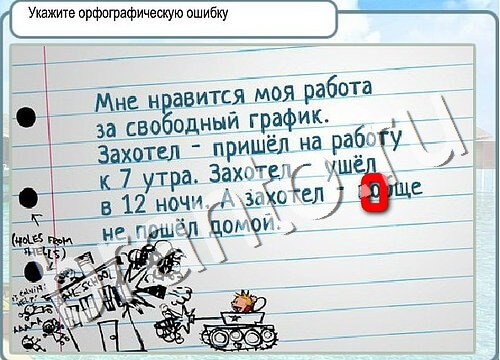 Укажите орфографическую ошибку
Мне нравится моя работа
за свободный график.
Захотел - пришёл на работу
к 7 утра. Захотел ушёл
в 12 ночи. А захотел - вобще
не пошёл домой.
(HOLES FROM
SCHOOL